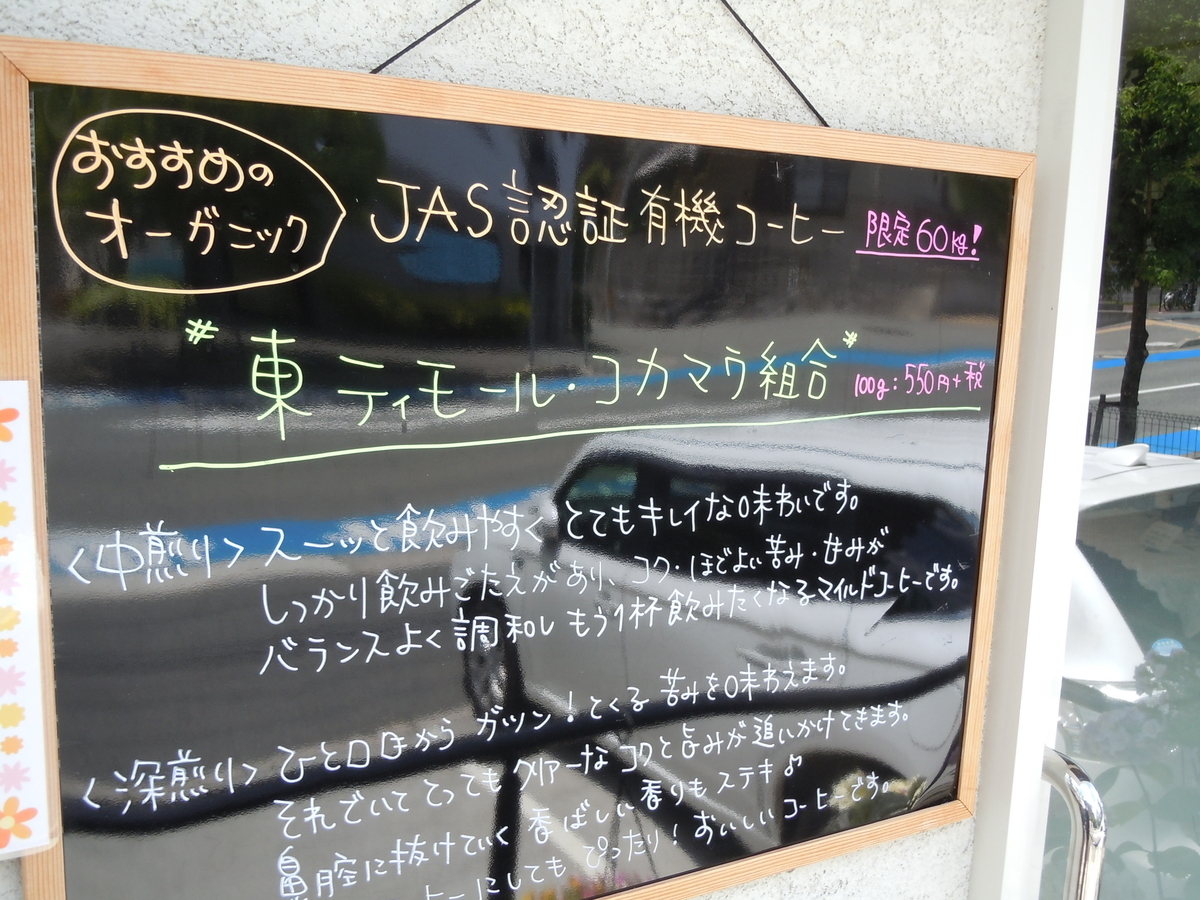 おすすめの
オーガニック
JAS認証有機コーヒー 限定60kg!
東ティモール・コカマウ組合 100g:550円+税
<中煎り>スーッと飲みやすく とてもキレイな味わいです。
しっかり飲みごたえがあり、コク・ほどよい苦み・甘みが
バランスよく調和し もう1杯飲みたくなるマイルドコーヒーです。
<深煎り>ひと口目から ガツン!とくる 苦みを味わえます。
それでいて とってもクリアーな コクと旨みが追いかけてきます。
鼻腔に抜けていく 香ばしい 香りもステキ♪
ーにしても ぴったり! おいしいコーヒーです。